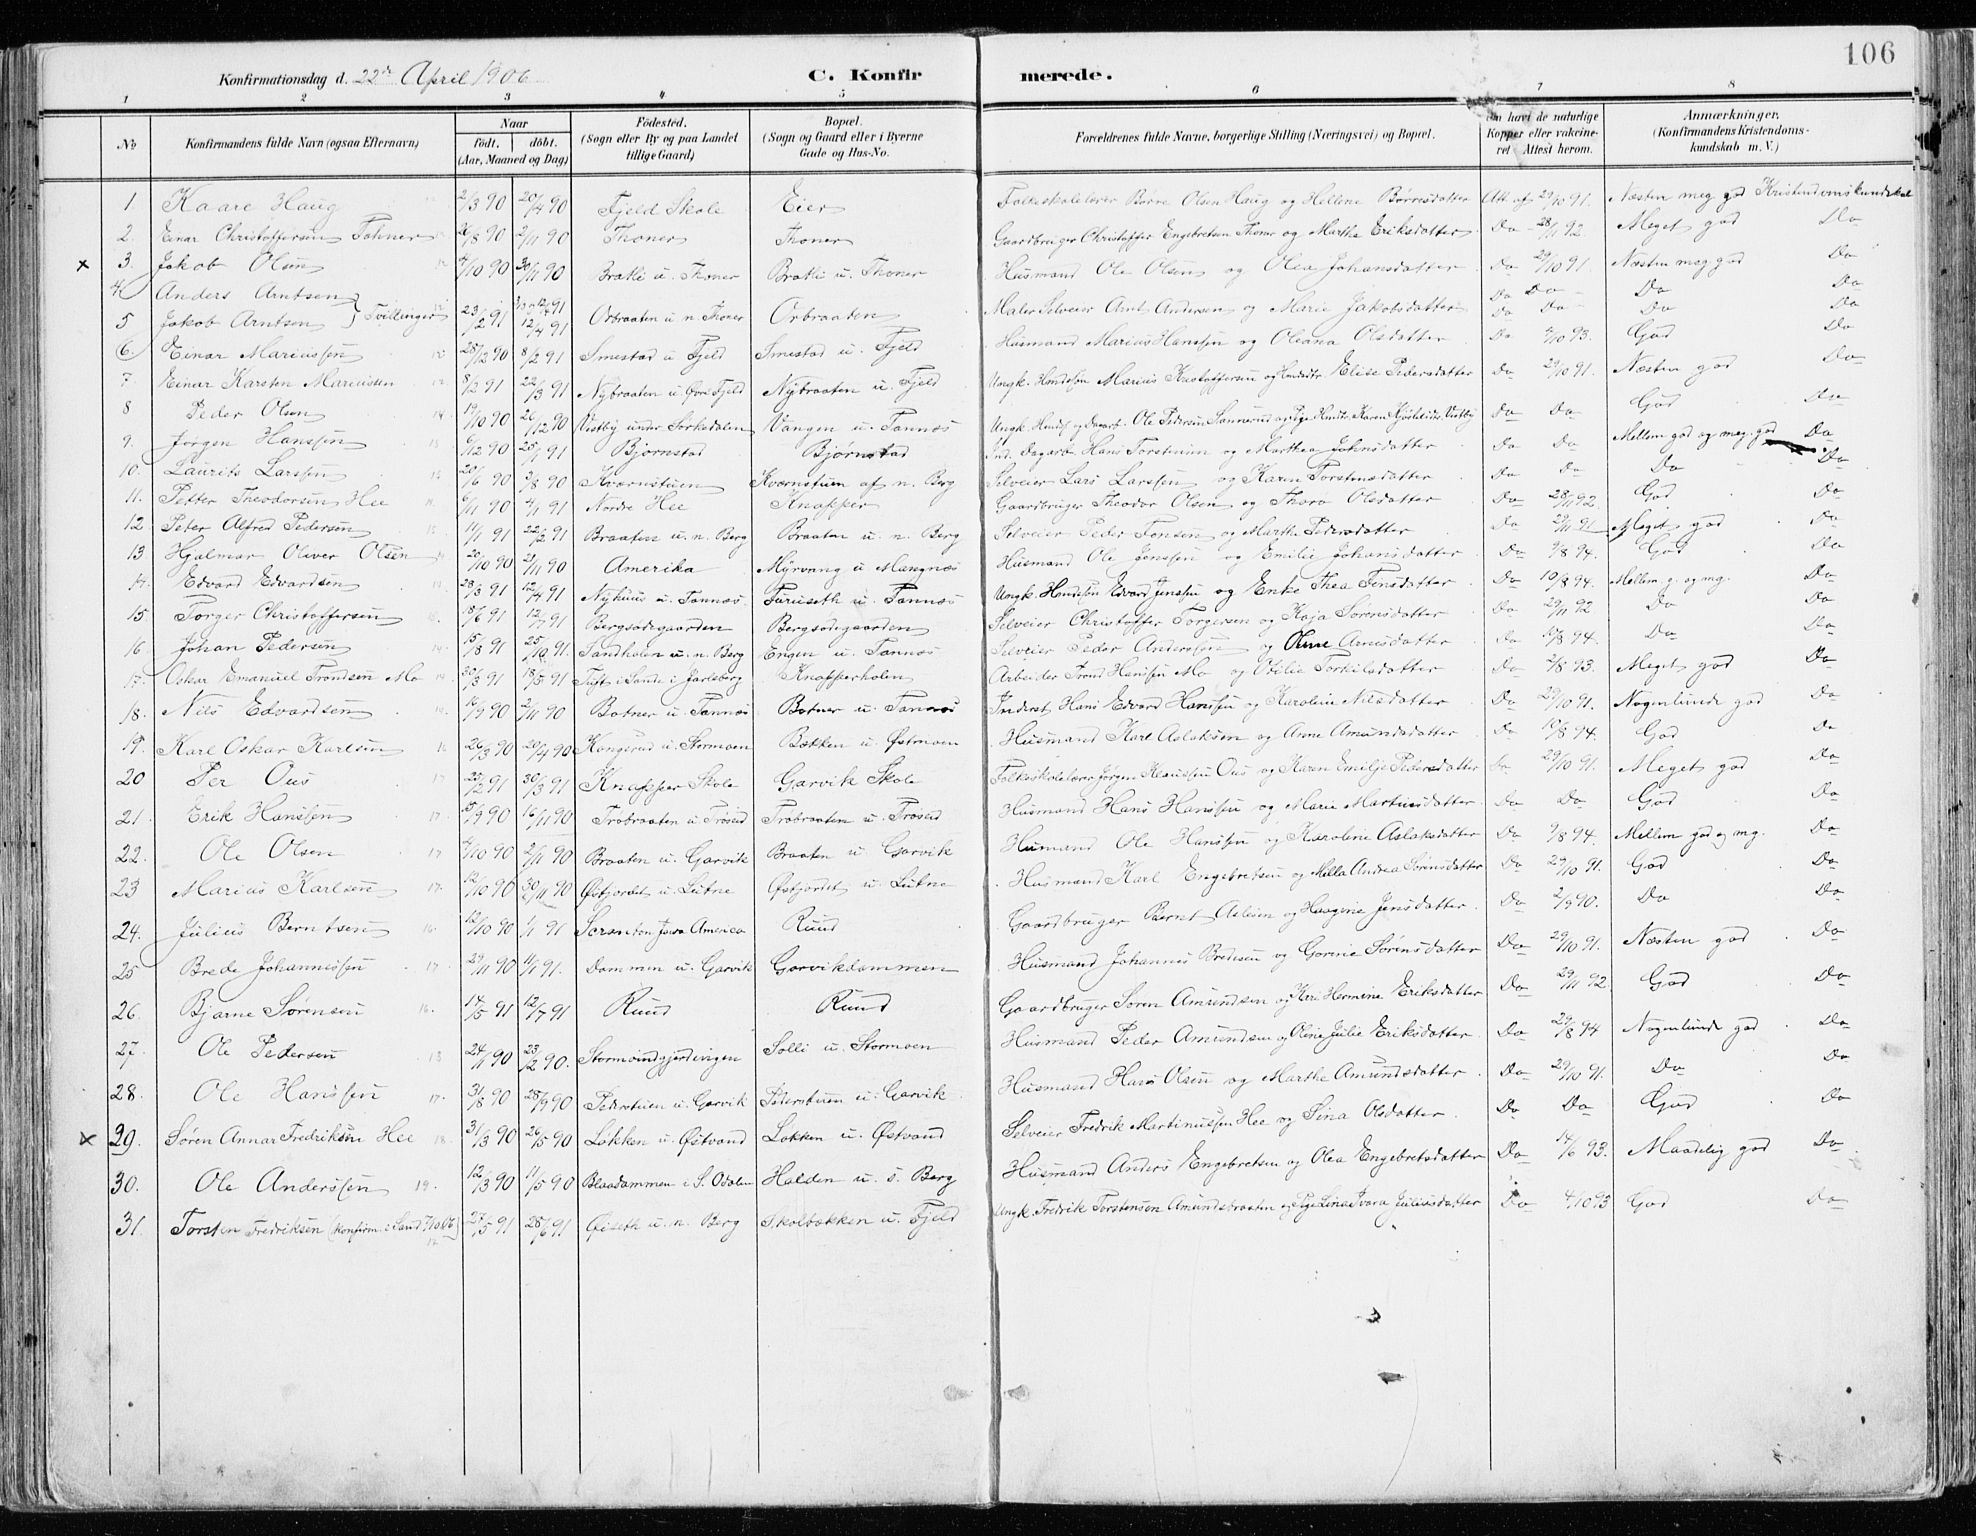 106
Konfirmationsdag d. 22de April 1906 C. Konfirmerede.
1 2 3 4 5 6 7 8
No Konfirmandens fulde Navn (ogsaa Efternavn) Naar født. døbt. (Aar, Maaned og Dag) Fødested. (Sogn eller By og paa Landet tillige Gaard) Bopæl. (Sogn og Gaard eller i Byerne Gade og Hus-No. Forældrenes fulde Navne, borgerlige Stilling (Næringsvei) og Bopæl. Om havt de naturlige Kopper eller vakcineret Attest herom. Anmærkninger. (Konfirmandens Kristendomskundskab m. V.)
1 Kaare Haug 2/3 90 20/4 90 Fjeld Skole Eier Folkeskolelærer Børre Olsen Haug og Hellene Børresdatter Att. af 29/10 91. Næsten meg god Kristendomskundskab
2. Einar Christoffersen Tohner 26/8 90 2/11 90 Thoner Thoner Gaardbruger Christoffer Engebretsen Thoner og Marthe Eriksdatter Do 28/11 92. Meget god Do
x 3. Jakob Olsen 4/10 90 30/11 90 Bratli u. Thoner Bratli u. Thoner Husmand Ole Olsen og Olea Johansdatter Do 29/10 91. Næsten meg god Do
4 Anders Arntsen Do Do Do Do
5 Jakob Arntsen } Tvillinger 23/2 91 12/4 91 Orbraaten u. n. Thoner Orbraaten Maler Selveier Arnt Andersen og Marie Jakobsdatter Do Do Do Do
6. Einar Mariussen 28/12 90 8/2 91 Smestad u Fjeld Smestad u. Fjeld Husmand Marius Hanssen og Oleana Olsdatter Do 4/10 93. God Do
7. Einar Karsten Mariusen 8/2 91 22/3 91 Nybraaten u. Øvre Fjeld Nybraaten u. Fjeld Ungk. Marius Kristoffersen og Elise Pedersdatter Do 29/10 91. Næsten god Do
8 Peder Olsen 19/10 90 26/12 90 Vistby under Sørkedalen Vangen u. Tannæs Ungk. Ole Pedersen Sannerud og Pige Karen Vistby Do Do God Do
9. Jørgen Hanssen 6/12 90 25/1 91 Bjørnstad Bjørnstad Ind. Dagarb. Hans Torstensen og Marthea Johnsdatter Do Do Mellem god og meg. god Do
10. Laurits Larssen 20/6 90 3/8 90 Kværnstuen Kværnstuen af n. Berg Selveier Lars Larssen og Karen Torstensdatter Do Do Do Do
11. Petter Theodorsen Hee 6/11 90 4/1 91 Nordre Hee Knapper Gaardbruger Theodor Olsen og Thora Olsdatter Do 28/11 92. God Do
12 Peter Alfred Pedersen 11/1 91 22/2 91 Braaten u. n. Berg Braaten u. n. Berg Selveier Peder Tonsen og Marthe Pedersdatter Do 29/11 91 Meget god Do
13 Hjalmar Oliver Olsen 20/10 90 2/11 90 Amerika Myrvang u Mangnæs Husmand Ole Jenssen og Emilie Johansdatter Do 9/8 94. God Do
14. Edvard Edvardsen 28/3 91 12/4 91 Nyhuus u. Tannæs. Furuseth u. Tannæs Ungk. Edvard Jenssen og Enke Thea Tensdatter Do 10/8 94. Mellem g. og mg. Do
15 Torger Christoffersen 18/6 91 12/7 91 Bergsødegaarden Bergsødegaarden Selveier Christoffer Torgersen og Kaja Sørensdatter Do 29/11 92 Do Do
16. Johan Pedersen 15/8 91 25/10 91. Sandholen u. n. Berg Engen u. Tannæs Selveier Peder Anderssen og Oline Arnesdatter Do 10/8 94. Do Do
17. Oskar Emanuel Trondsen Mo 30/3 91 18/5 91 Tuft i Sande i Jarlsberg Knapperholen Arbeider Trond Hanssen Mo og Otilie Torkilsdatter Do 2/8 93. Meget god Do
18. Nils Edvardsen 16/9 90 2/11 90 Botner u. Tannæs Botner u. Tannæs Inderst Hans Edvard Hanssen og Karoline Nilsdatter Do 29/10 91. Nogenlunde god Do
19. Karl Oskar Karlsen 26/3 90 20/4 90 Kongsrud u. Stormoen Bækken u. Østmoen Husmand Karl Aslaksen og Anne Amundsdatter Do 10/8 94. God Do
20 Per Ous 22/2 91 30/3 91 Knapper Skole Garvik Skole Folkeskolelærer Jørgen Klaussen Ous og Karen Emilje Pedersdatter Do 29/10 91. Meget god Do
21. Erik Hanssen 15/9 90 16/11 90 Trobraaten u. Trøseid Trobraaten u. Trøseid Husmand Hans Hanssen og Marie Martinesdatter Do Do God Do
22. Ole Olsen 4/10 90 2/11 90 Braaten u. Garvik Braaten u. Garvik Husmand Ole Hanssen og Karoline Aslaksdatter Do 9/8 94. Mellem god og mg. Do
23 Marius Karlsen 12/10 90 30/11 90 Østjordet u. Lütne Østjordet u. Lütne Husmand Karl Engebretsen og Milla Andrea Sørensdatter Do 29/10 91. God Do
24. Julius Berntsen 12/10 90 1/1 91 Scranton Jowa America Ruud Gaardbruger Bernt Aslesen og Haagine Jensdatter Do 2/9 90. Do Do
25 Brede Johannessen 29/11 90 11/1 91. Dammen u. Garvik Garvikdammen Husmand Johannes Bredesen og Gorine Sørensdatter Do 29/10 91. Næsten god Do
26. Bjarne Sørensen 14/5 91 12/7 91 Ruud Ruud Gaardbruger Søren Amundsen og Kari Hermine Eriksdatter Do 29/11 92. God Do
27. Ole Pedersen 24/1 90 23/2 90. Stormoindgjerdingen Solli u. Stormoen Husmand Peder Amundsen og Oline Julie Eriksdatter Do 29/8 94 Nogenlunde god Do
28. Ole Hanssen 31/8 90 28/9 90 Pederstuen u. Garvik Pederstuen u. Garvik Husmand Hans Olsen og Marthe Amundsdatter Do 29/10 91. Do Do
x 29. Søren Annar Fredriksen Hee 31/3 90 26/5 90 Løkken u. Østvand Løkken u. Østvand Selveier Fredrik Martinussen Hee og Sina Olsdatter Do Do God Do
30. Ole Anderssen 12/3 90 11/5 90 Blaadammen i S. Odalen Halden u. s. Berg Husmand Anders Engebretsen og Olea Engebretsdatter Do 14/6 93. Maadelig god Do
31. Torsten Fredriksen (konfirm. i Sand 7/10 06) 27/5 91 28/6 91 Øiseth u. n. Berg Skolbækken u. Fjeld Ungk. Fredrik Torstensen Amundsbraaten og Pige Lina Ivara Juliusdatter Do 4/10 93 God Do